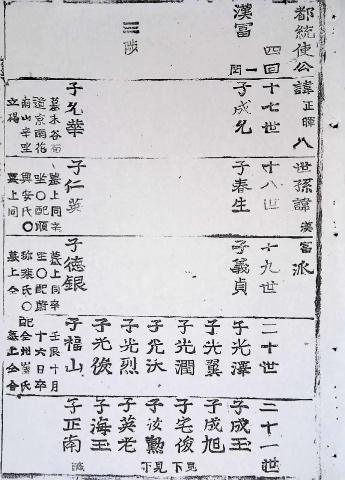 都統使公諱正暉八世孫諱漢富派
漢富
四回一閃
三陟
十七世
子成允
子允華
墓木谷面
道京雨花
南山辛坐
立碣
十八世
子春生
子仁英
墓上同辛
坐〇配順
興安氏〇
墓上同
十九世
子義貞
子德銀
墓上同辛
坐〇配蔚
珍張氏〇
墓上仝
二十世
子光澤
子光翼
子光潤
子光沃
子光烈
子光俊
子福山
壬辰十月
十六日卒
配全州崔氏
墓上仝合
二十一世
子成玉
子成旭
子宅俊
子汝勲
子英老
子海玉
子正南
見下
見下